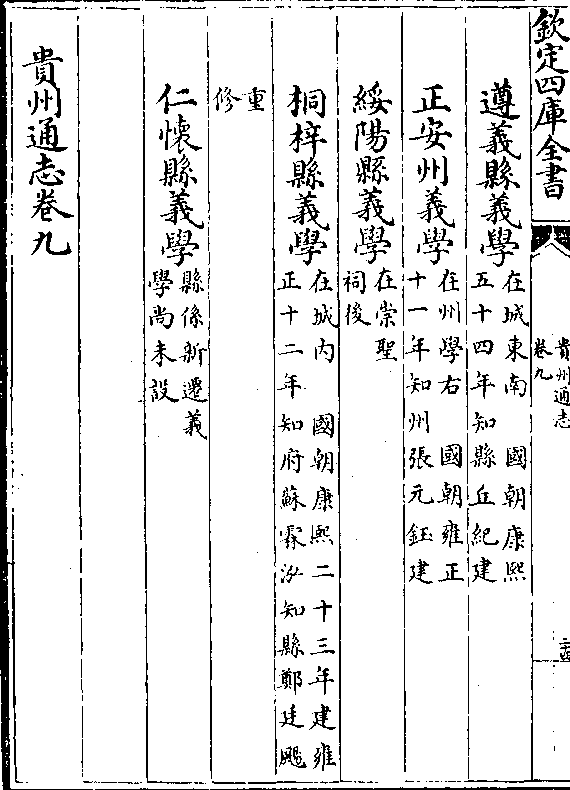 欽定四庫全書
貴州通志
卷九
遵義縣義學
在城東南 國朝康熙
五十四年知縣丘紀建
正安州義學
在州學右 國朝雍正
十一年知州張元鈺建
綏陽縣義學
在崇聖
祠後
桐梓縣義學
在城内 國朝康熙二十三年建雍
正十二年知府蘇霖汐知縣鄭廷颺
重
修
仁懷縣義學
縣係新遷義
學尚未設
貴州通志卷九